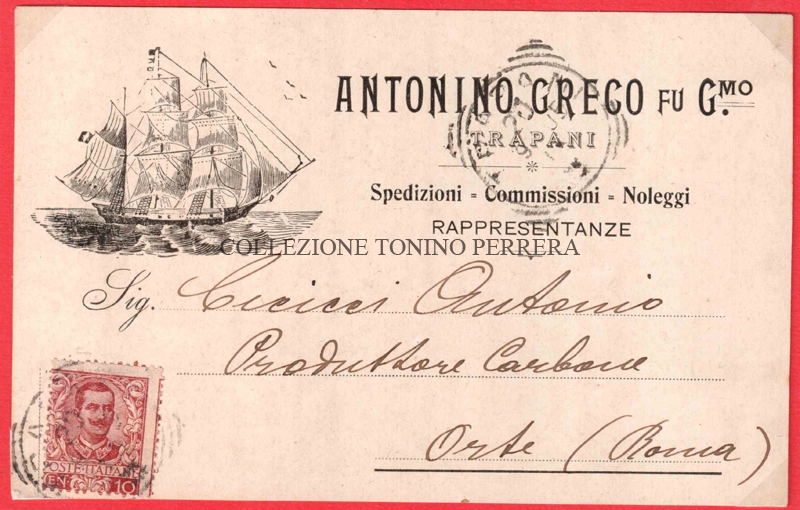 ANTONINO GRECO FU G.MO
TRAPANI
Spedizioni = Commissioni = Noleggi
RAPPRESENTANZE
COLLEZIONE TONINO PERRERA
Sig. Cicicci Antonio
Produttore Carbone
Orte (Roma)
POSTE ITALIANE
CEN 10